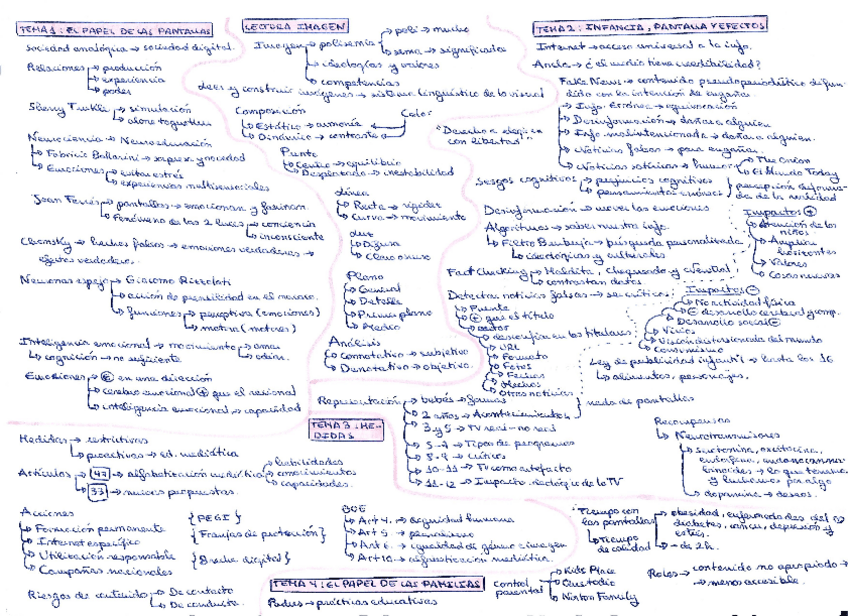 TEMA 1: EL PAPEL DE LAS PANTALLAS
sociedad analógica → sociedad digital.
Relaciones → producción
→ experiencia
→ poder
Sherry Turkle → simulación
→ alone together
Neurociencia → Neuroeducación
→ Fabricio Ballarini → sorpresa y novedad
→ Emociones → evitar estrés
→ experiencias multisensoriales
Joan Ferrés → pantallas → emocionan y fascinan
→ Fenómeno de las 2 luces → conciencia
→ inconsciente
Chomsky → hechos falsos → emociones verdaderas →
efectos verdaderos.
Neuronas espejo → Giacomo Rizzolati
→ funciones → perceptiva (emociones)
→ motora (motores)
Inteligencia emocional → movimiento → amar
→ odiar.
→ cognición → no suficiente
Emociones → en una dirección
→ cerebro emocional + que el racional
→ inteligencia emocional → capacidad
LECTURA IMAGEN
Imagen → polisemia → poli → mucho
→ sema → significados
→ ideologías y valores
→ competencias
leer y construir imágenes → sistema lingüístico de lo visual
Composición
→ Estático → armonía
→ Dinámico → contraste
Color
Punto
→ Centro → equilibrio
→ Desplazado → inestabilidad
Línea
→ Recta → rigidez
→ Curva → movimiento
Luz
→ Difusa
→ Claro oscuro
Plano
→ General
→ Detalle
→ Primer plano
→ Medio
Análisis
→ Connotativo → subjetivo
→ Denotativo → objetivo.
"Derecho a elegir
con libertad"
TEMA 2: INFANCIA, PANTALLA Y EFECTOS
Internet → acceso universal a la info.
Fake News → contenido pseudoperiodístico difun-
dido con la intención de engañar
→ Info. Errónea → equivocación
→ Desinformación → dañar a alguien
→ Info. malintencionada → dañar a alguien.
→ Noticias falsas → para engañar.
→ Noticias satíricas → humor → The Onion
→ El Mundo Today
Sesgos cognitivos → prejuicios cognitivos
→ pensamientos erróneos
percepción deforma-
da de la realidad
Desinformación → mover las emociones
Algoritmos → saber nuestra info.
→ Filtro Burbuja → búsqueda personalizada
→ ideológicas y culturales
Fact Checking → Maldita, Chequeado y Newtral
→ contrastan datos
Detectar noticias falsas → ser críticos
→ Fuente
→ + que el título
→ autor
→ desconfía en los titulares
→ URL
→ Formato
→ Fotos
→ Fechas
→ Hechos
→ Otras noticias
Impactos +
→ Atención de los
niños
→ Amplían
horizontes
→ Valores
→ Cosas nuevas
Impactos -
→ Desarrollo social
→ Visión distorsionada del mundo
→ Consumismo
Ley de publicidad infantil → hasta los 16
→ alimentos, personajes.
Representación → bebés → formas
→ 2 años → Acontecimientos
nada de pantallas
→ 3 y 5 → TV real - no real
→ 5-7 → Tipos de programas
→ 8-9 → críticos
→ 10-11 → TV como artefacto
→ 11-12 → Impacto ideológico de la TV
Recompensas
→ Neurotransmisores
→ dopamina → deseos.
TEMA 3: ME-
DIDAS
Medidas → restrictivas
→ proactivas → ed. mediática
Artículos → 47 → alfabetización mediática → habilidades
→ conocimientos
→ capacidades.
→ 33 → nuevas propuestas.
Acciones
→ Formación permanente
→ Internet específico
→ Utilización responsable
→ Campañas nacionales
{PEGI}
{Franjas de protección}
{Brecha digital}
Riesgos de contenido → De contacto
→ De conducta.
BOE
→ Art 4. → dignidad humana
→ Art 5 → pluralismo
→ Art 6. → igualdad de género e imagen
→ Art 10. → alfabetización mediática.
TEMA 4: EL PAPEL DE LAS FAMILIAS
Padres → prácticas educativas
control
parental → Kids Place
→ Qustodio
→ Norton Family
Tiempo con
las pantallas
→ Tiempo
de calidad
→ - de 2h.
Roles → contenido no apropiado →
→ menos accesible.